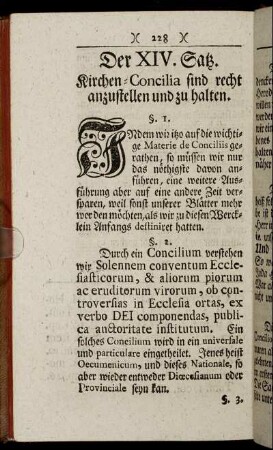 )( 228 )(
Der XIV. Satz.
Kirchen-Concilia sind recht
anzustellen und zu halten.
§. 1.
INdem wir itzo auf die wichti-
ge Materie de Conciliis ge-
rathen, so müssen wir nur
das nöthigste davon an-
führen, eine weitere Aus-
führung aber auf eine andere Zeit ver-
sparen, weil sonst unserer Blätter mehr
werden möchten, als wir zu diesen Werck-
lein Anfangs destiniret hatten.
§. 2.
Durch ein Concilium verstehen
wir Solennem conventum Eccle-
siasticorum, & aliorum piorum
ac eruditorum virorum, ob con-
troversias in Ecclesia ortas, ex
verbo DEI componendas, publi-
ca auctoritate institutum. Ein
solches Concilium wird in ein universale
und particulare eingetheilet. Jenes heist
Oecumenicum, und dieses Nationale, so
aber wieder entweder Diœcesianum oder
Provinciale seyn kan.
§. 3.